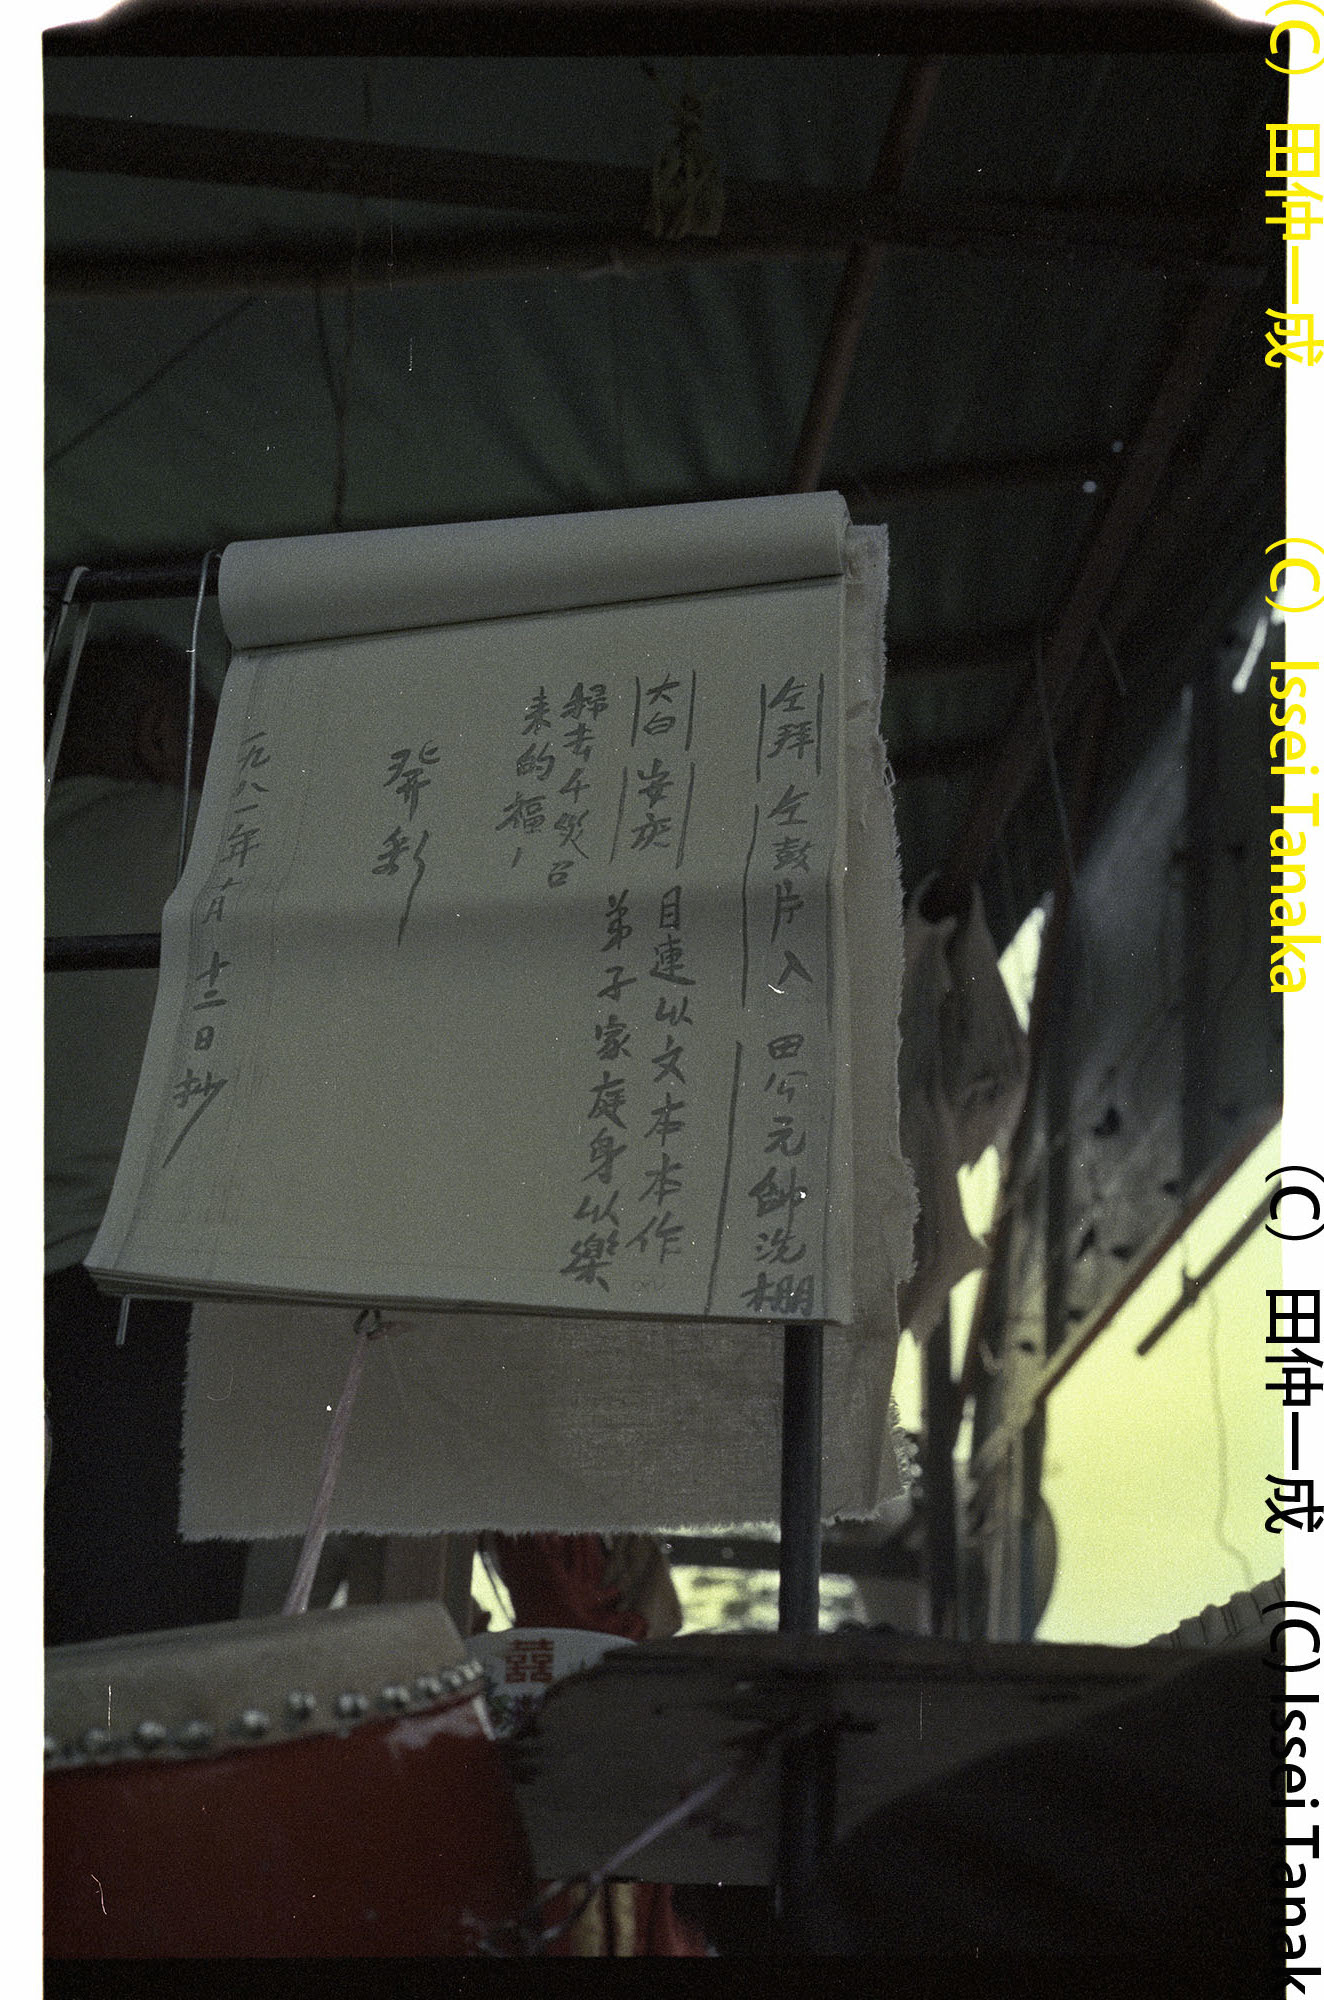 仝拜 仝鼓片入 田公元帥洗棚
大白 安於 目連以文本本作
弟子家庭身以樂
歸去千災召
来的福
發彩
一九八一年十月十二日抄
囍
(C) 田仲一成 (C) Issei Tanaka (C) 田仲一成 (C) Issei Tanak